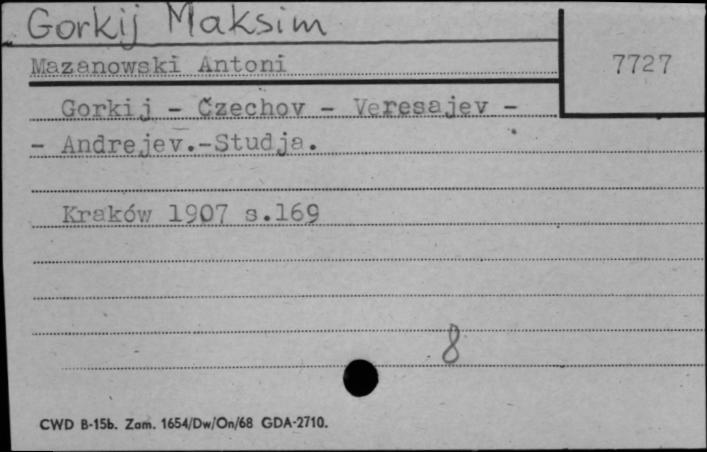 Gorkij Maksim
Mazanowski Antoni
7727
Gorkij - Czechov - Veresajev -
- Andrejev.-Studja.
Kraków 1907 s.169
8
CWD B-15b. Zam. 1654/Dw/On/68 GDA-2710.